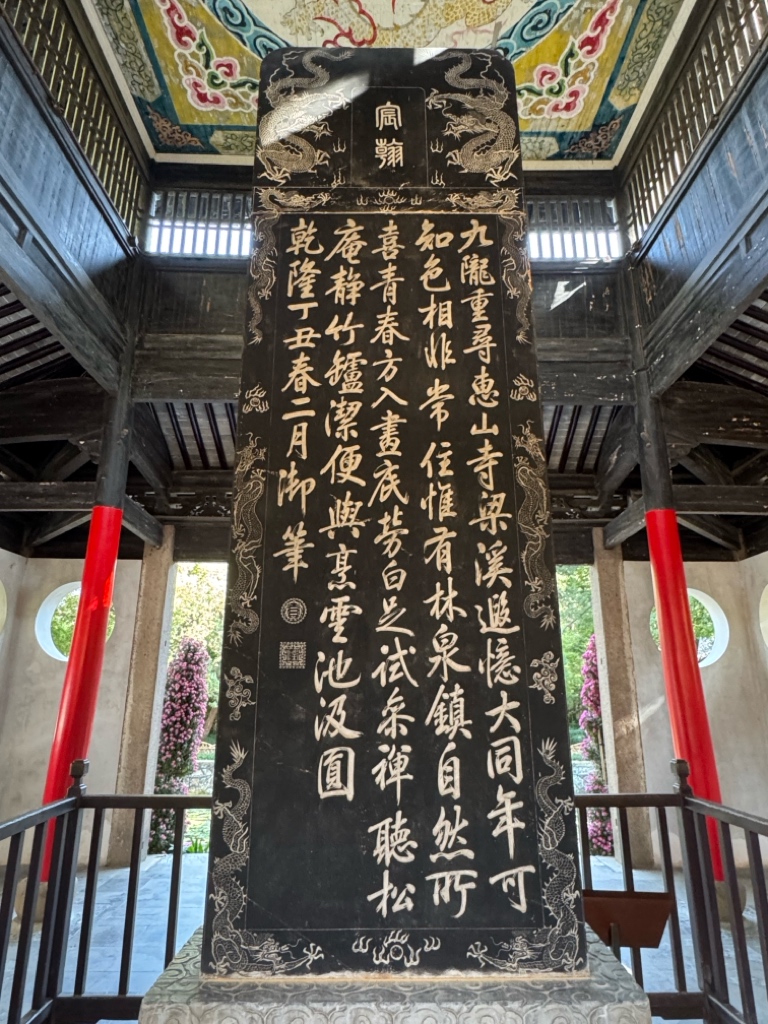 宸翰
九隴重尋惠山寺梁溪遐憶大同年可
知色相非常住惟有林泉鎮自然所
喜青春方入畫底勞白足試參禪聽松
庵靜竹罏潔便與烹雲池汲圓
乾隆丁丑春二月御筆